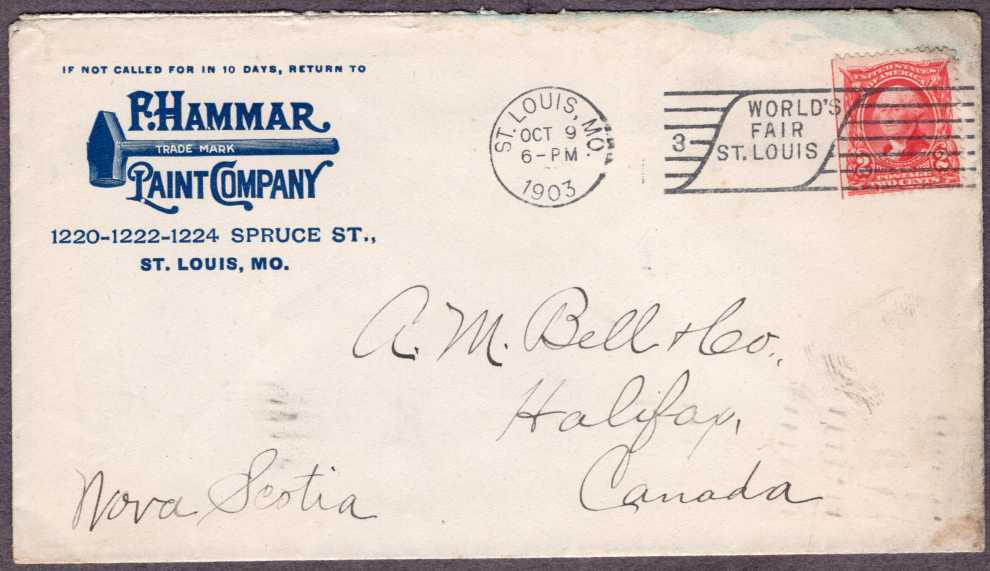 IF NOT CALLED FOR IN 10 DAYS, RETURN TO
F. HAMMAR
TRADE MARK
PAINT COMPANY
1220-1222-1224 SPRUCE ST.,
ST. LOUIS, MO.
ST. LOUIS, MO.
OCT 9
6-PM
1903
3
WORLD'S
FAIR
ST. LOUIS
UNITED STATES
OF AMERICA
2 2
POSTAGE
TWO CENTS
A. M. Bell & Co.,
Halifax,
Canada
Nova Scotia